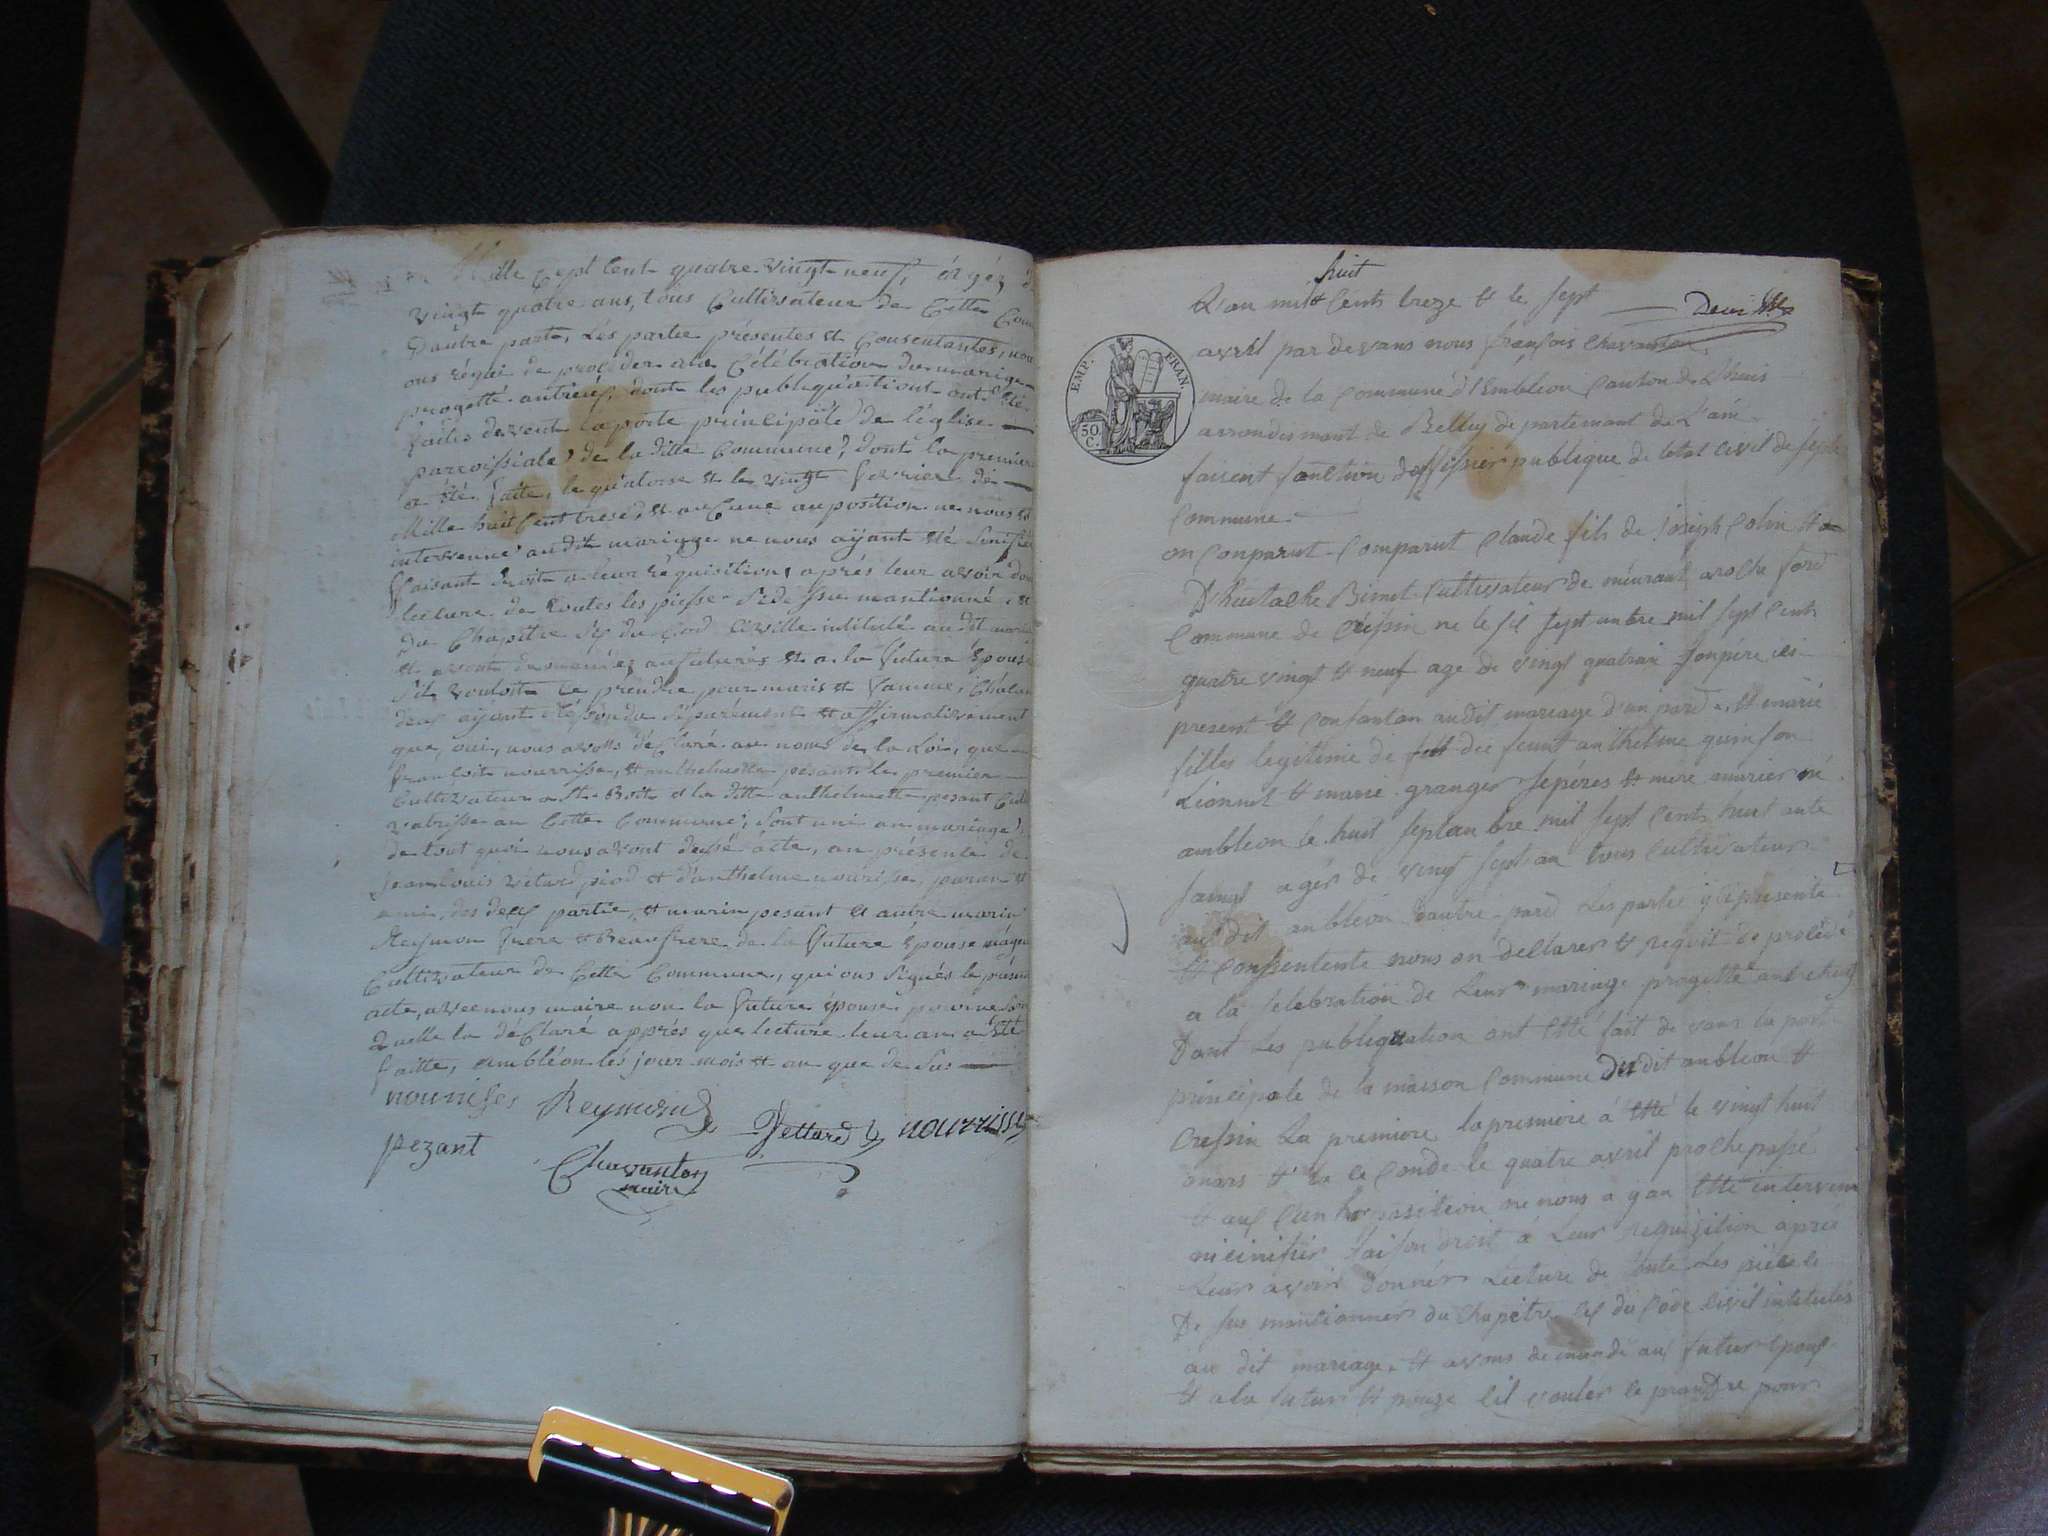 Mille Sept Cent quatre vingt neuf, agéz
vingt quatre ans, tous Cultivateur de Cette Com
D'autre part, Les partie présentes et Consentantes, nou
ons réqui de proceder ala Célébration du mariage
progetté antreux, dont les publiquations ont été
faites devent la porte principale de l'église
paroissiale de la ditte Commune, dont la première
a été faite, le quatorse et le vingt fevrier de
Mille huit Cent trese, et auCune auposition ne nous
intervenue audit mariage ne nous ayant été Sinifié
faisant droit a leur réquisition, après leur avoir don
lecture de toutes les piesse Sidessu mantionné, et
du Chapitre Six du Cod Civille intitulé au dit maria
et avont demandez aufuturéx et a la future épouse
Sil vouloit Ce prendre pour maris et famme, Chacun
deux ayant Répondu Séparément et affirmativement
que, oui, nous avons déClaré au nom de la Loi, que
françois nourrisse, et anthelmette pesant, le premier
Cultivateur a St. Boit et la ditte anthelmette pesant Cul
au Cette Commune, Sont uni an mariage,
de tout quoi nous avont dessé acte, an présence de
jean louis vétard piod et d'anthelme nourisse, paran et
ami, des deux partie, et marin pesant et autre marin
Reymon frere et Beaufrere de la future épouse
Cultivateur de Cette Commune, qui ons Signés le présent
acte, avec nous maire non la future épouse pour ne
quelle la déClaré apprés que lecture leur an a été
faitte, ambléon les jour mois et an que de Sus
nourisses Reymond Vettard nourrisse
pezant Chavanton
maire
huit
L'an mil Cents treze et le sept
EMP. FRAN.
50 C.
avril par devans nous françois Chavanton
maire de la Commune d'Embléon Canton de Lhuis
arrondismant de Belley departemant de L'ain
faisent fonction d'offisier publique de letat Civil de
Commune
on Conparut Comparut Claude fils de joseph Colin et
D'hustache Binet Cultivateur de
Commune de Crépin ne le six septanbre mil sept Cent
quatre vingt et neuf age de vingt quatran son père
present et Consantan audit mariage d'un pard, et marie
filles legitime de feunt anthelme quinson
Lionnet et marie granger sepéres et mère né
ambleon le huit septanbre mil sept Cents huit ante
agér de vingt sept an tous Cultivateur
audit anbleon D'autre pard Les partie présente
et Consentente nous on declarer et requit de procédé
a la Celebration de Leur mariage progetté antreheux
Dont Les publiquation ont Etté fait de vans la port
principale de la maison Commune Du dit anbleon et
Crépin La premiere la premiere a Etté le vingt huit
mars et la Ce Conde le quatre avril proche passé
et auxCun hopasition ne nous a yan Etté intervenu
nicinifier faison droit à Leur requizition aprè
Leur avoir donnér Lecture de toute Les pièce
De sus mantionner du chapitre six du Code Civil intitulés
au dit mariage et avons demandé aux futur Epoux
et a la futur Epouze sil vouler Ce prandre pour